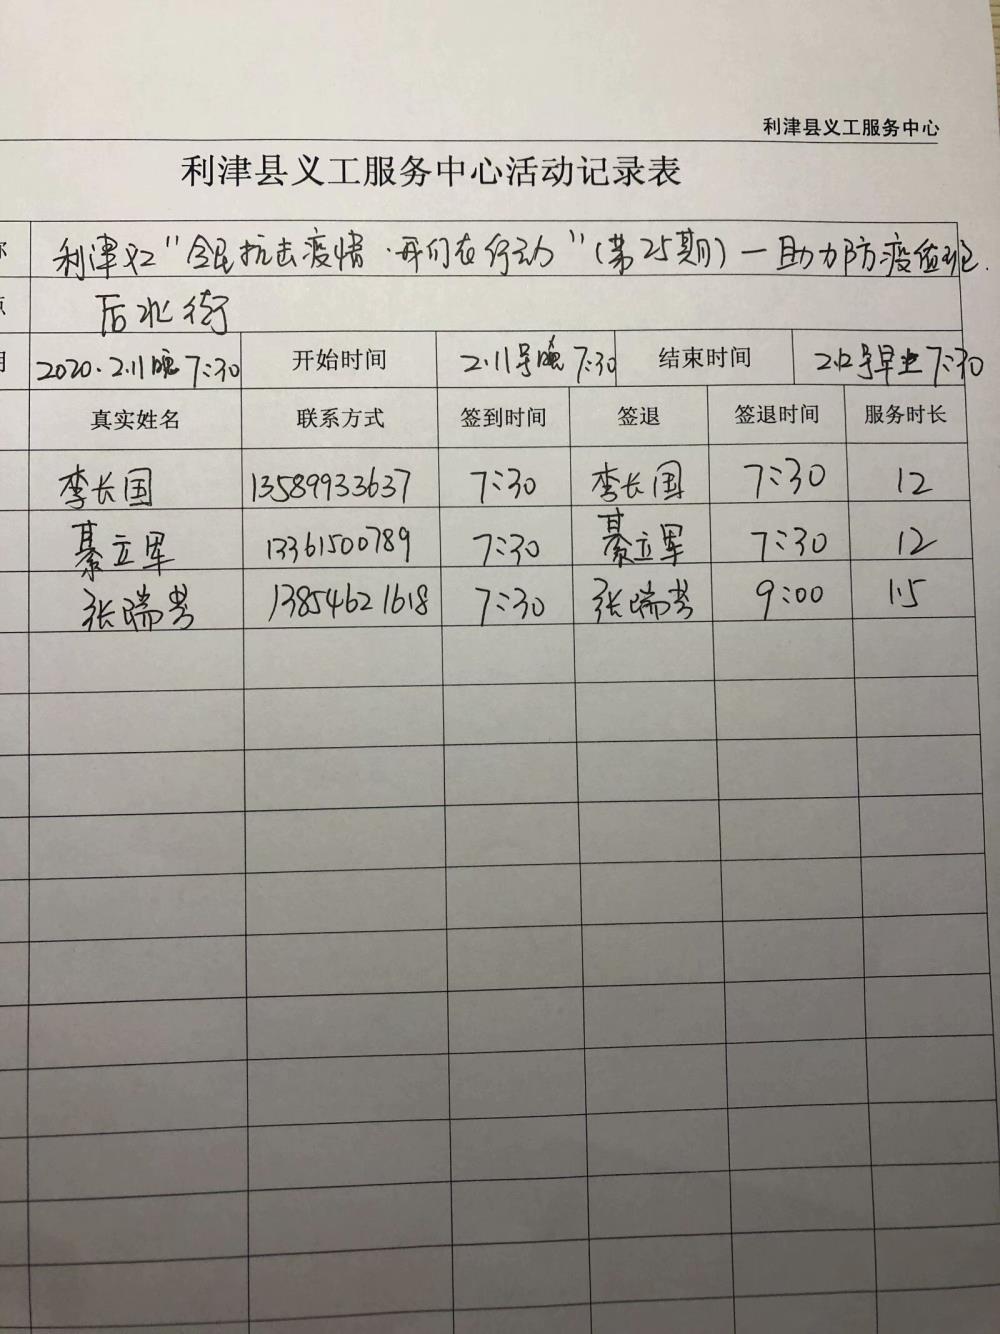 利津县义工服务中心
利津县义工服务中心活动记录表
利津义工"全民抗击疫情·我们在行动"(第25期)—助力防疫值班.
后北街
2020.2.11晚7:30 开始时间 2.11号晚7:30 结束时间 2.12号早上7:30
真实姓名 联系方式 签到时间 签退 签退时间 服务时长
李长国 13589933637 7:30 李长国 7:30 12
綦立军 13361500789 7:30 綦立军 7:30 12
张瑞芳 13854621618 7:30 张瑞芳 9:00 1.5